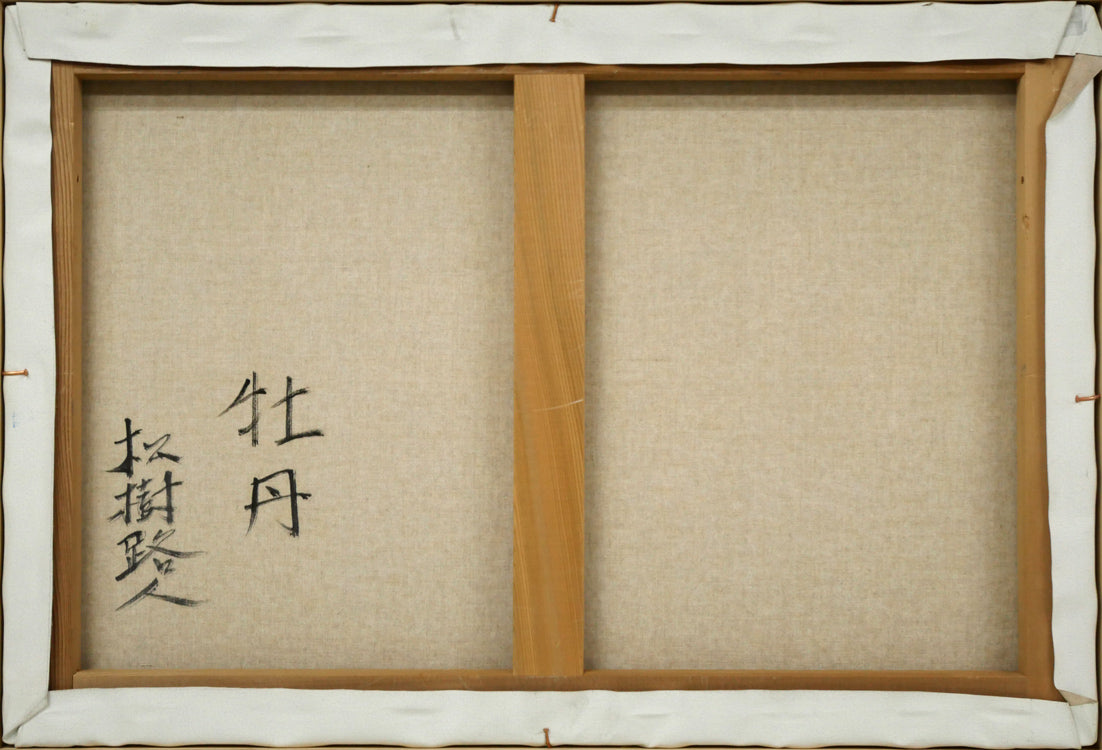 牡丹
松樹路人